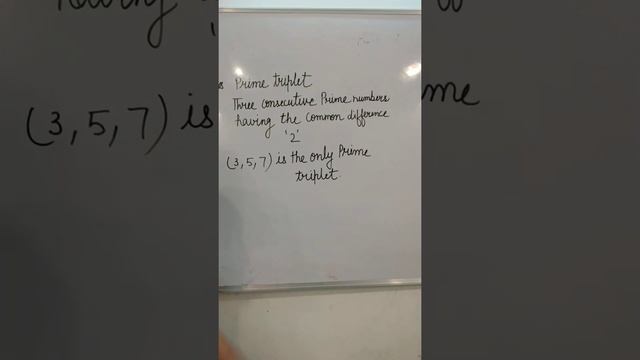 Prime triplet
Three consecutive Prime numbers
having the common difference
'2'
(3, 5, 7) is the only Prime
triplet.